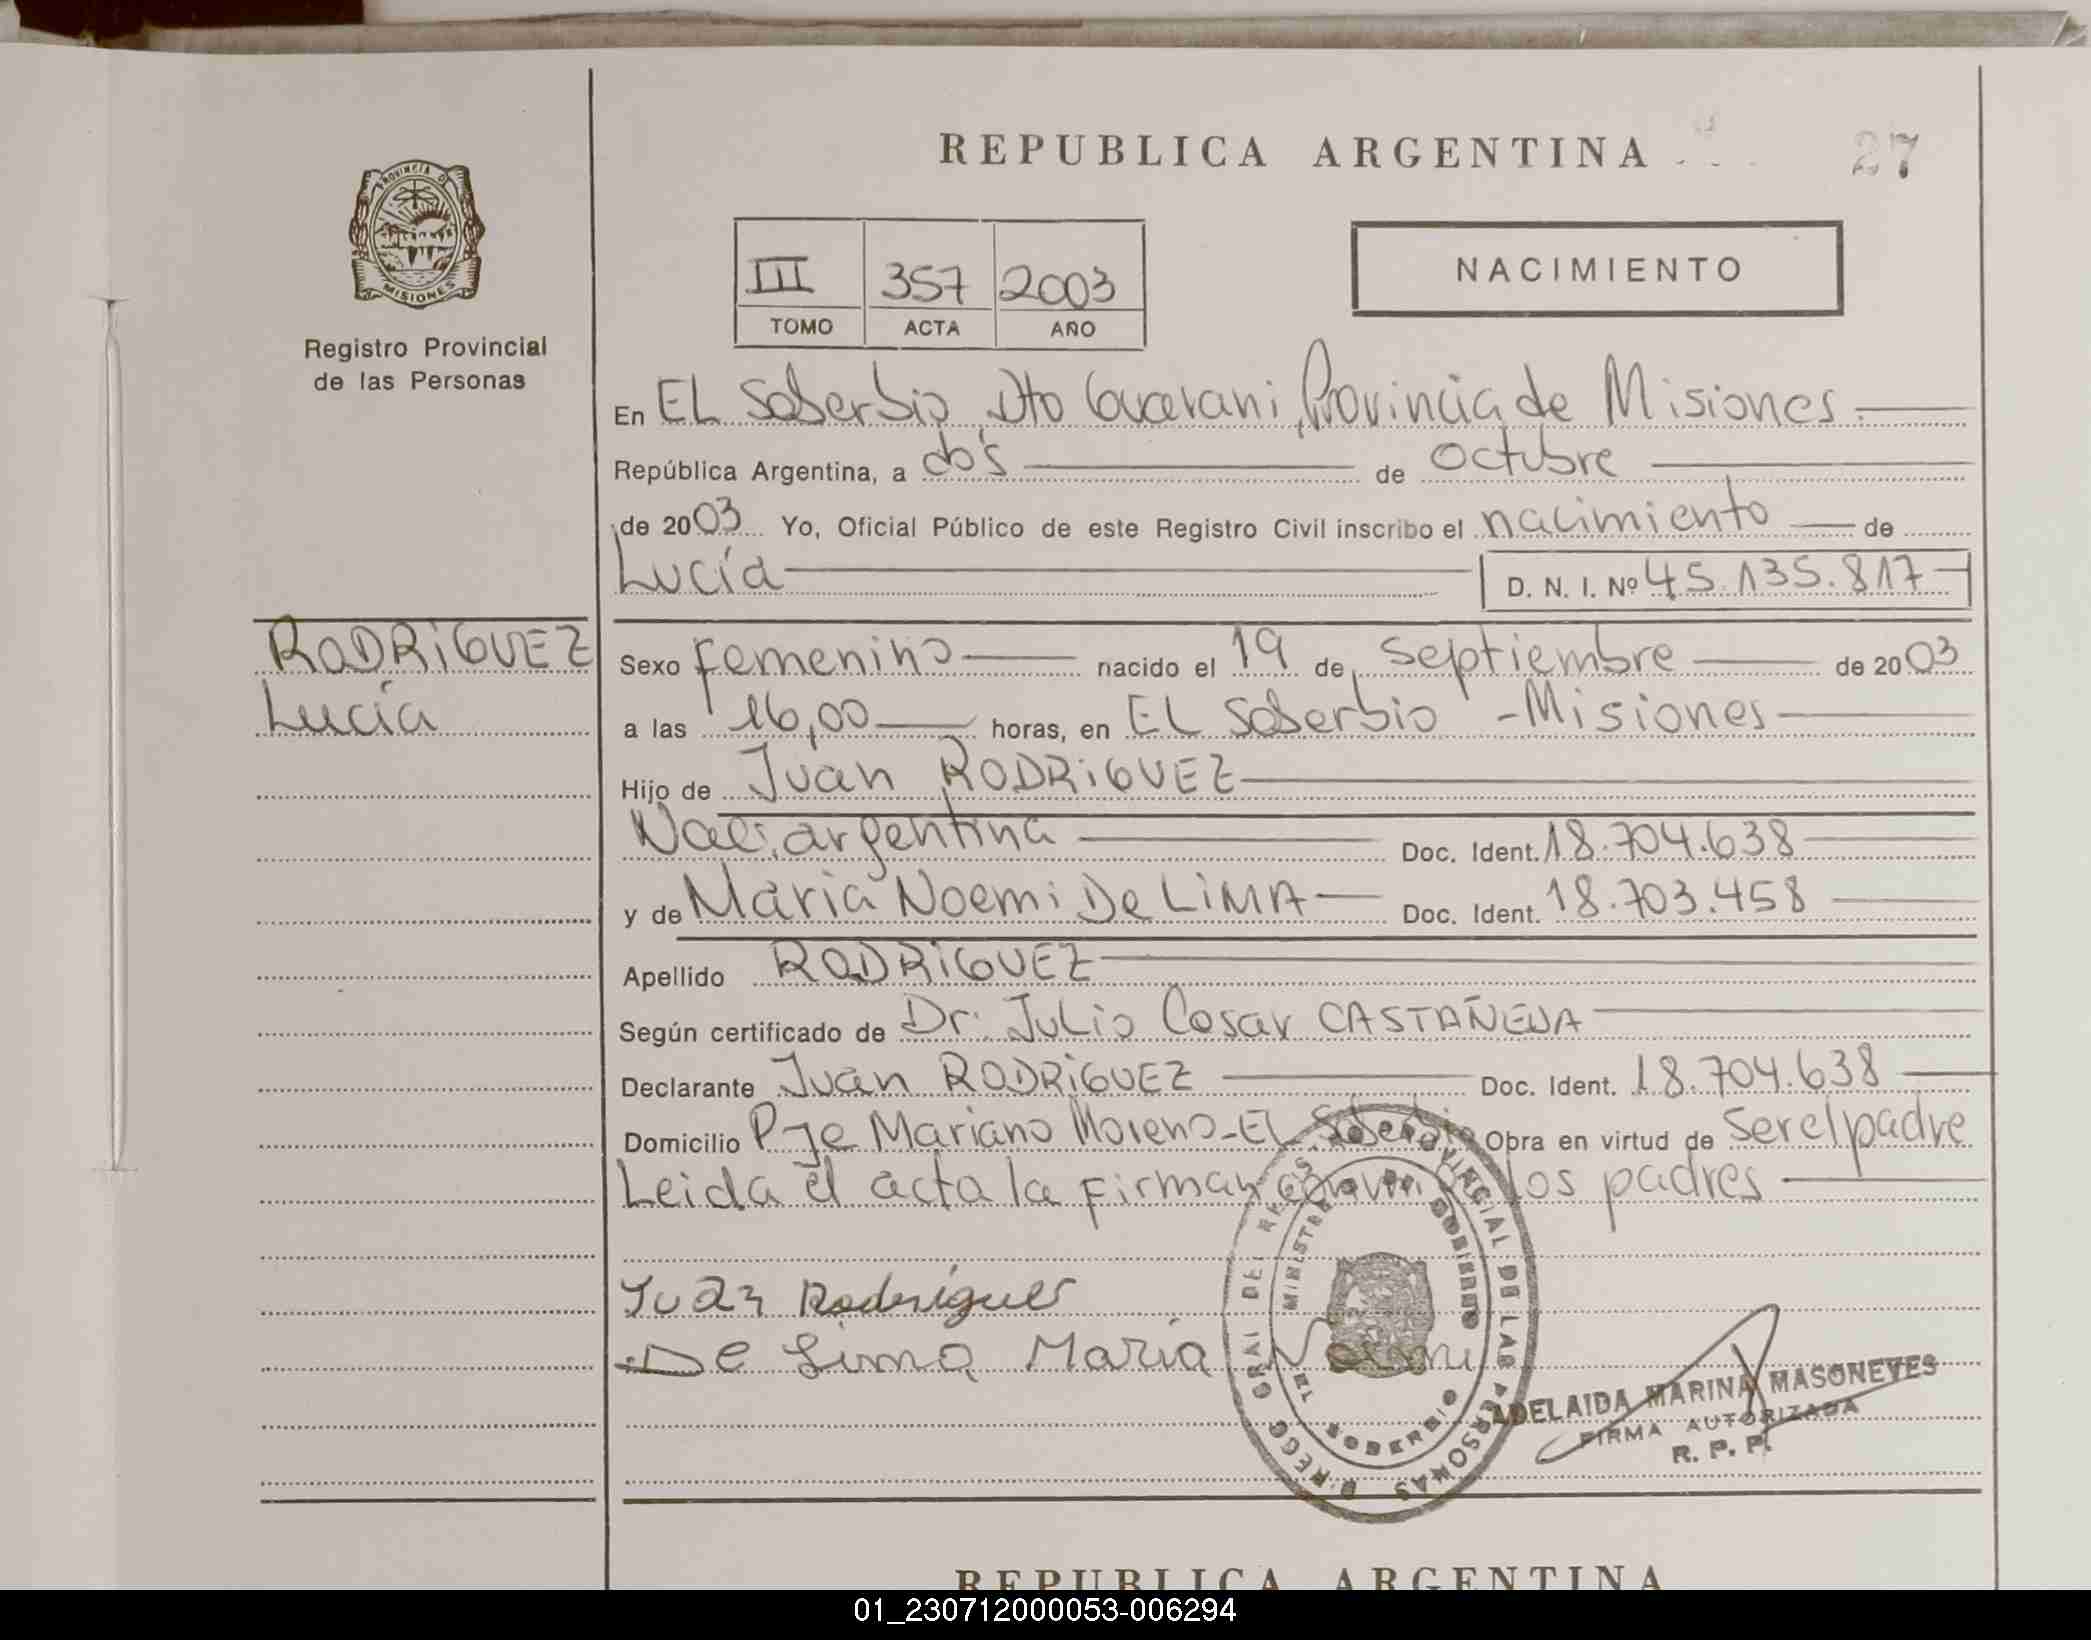 REPUBLICA ARGENTINA
27
PROVINCIA DE
MISIONES
Registro Provincial
de las Personas
III 357 2003
TOMO ACTA AÑO
NACIMIENTO
En EL Soberbio, Dto Guarani, Provincia de Misiones.
República Argentina, a dos de octubre
de 2003 Yo, Oficial Público de este Registro Civil inscribo el nacimiento de
Lucía D. N. I. Nº 45.135.817
RODRIGUEZ
Lucía
Sexo Femenino nacido el 19 de septiembre de 2003
a las 16,00 horas, en EL Soberbio - Misiones
Hijo de Juan RODRIGUEZ
Nac. argentina Doc. Ident. 18.704.638
y de Maria Noemi De LiMA Doc. Ident. 18.703.458
Apellido RODRIGUEZ
Según certificado de Dr. Julio Cesar CASTAÑEDA
Declarante Juan RODRIGUEZ Doc. Ident. 18.704.638
Domicilio Pje Mariano Moreno - EL Soberbio Obra en virtud de ser el padre
Leida el acta la firman los padres
Juan Rodriguez
De Lima Maria Noemi
MINISTERIO DE GOBIERNO
SOBERBIO
PROVINCIAL DE LAS PERSONAS
ADELAIDA MARINA MASONEVES
FIRMA AUTORIZADA
R. P. P.
REPUBLICA ARGENTINA
01_230712000053-006294